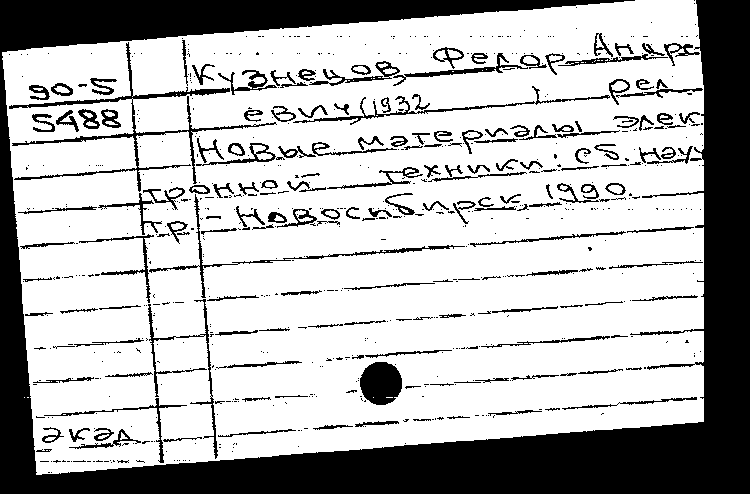 90-5 Кузнецов, Федор Андре-
5488 евич, (1932 ) ред.
Новые материалы элек-
тронной техники: Сб. науч
тр. - Новосибирск, 1990.
акад